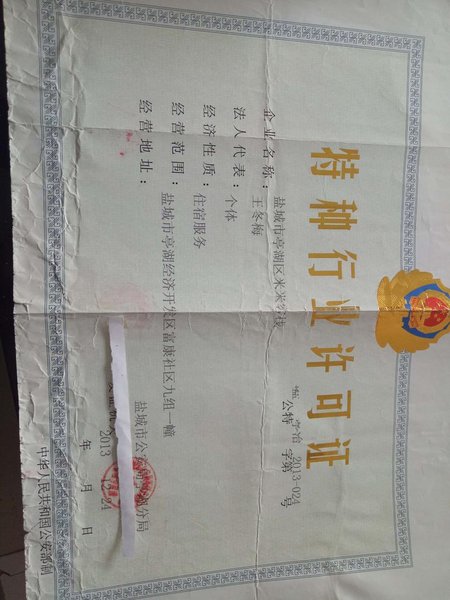 特种行业许可证
公特 字第 2013-024 号
企业名称：盐城市亭湖区米米
法人代表：王冬梅
经济性质：个体
经营范围：住宿服务
经营地址：盐城市亭湖经济开发区富康社区九组一幢
盐城市公安局 分局
2013 年 月 日
12-24
中华人民共和国公安部制